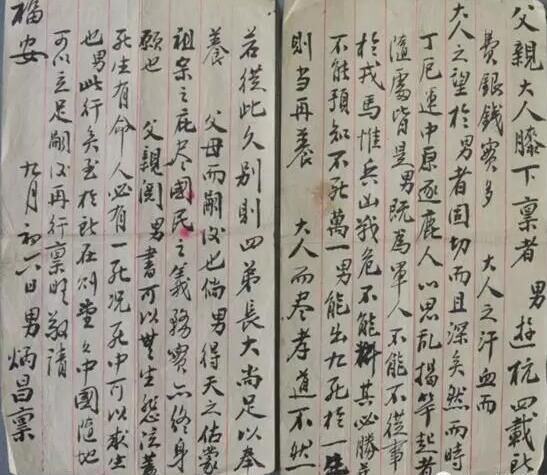 父親大人膝下稟者 男遊杭四載所
費銀錢實多 大人之汗血而
大人之望於男者固切而且深矣然而時
丁厄運中原逐鹿人心思亂揭竿起者
隨處皆是男既為軍人不能不從事
於戎馬惟兵凶戰危不能料其必勝
不能預知不死萬一男能出九死於一生
則当再養 大人而尽孝道不然
若從此久別則四弟長大尚足以奉
養 父母而嗣後也倘男得天之佑蒙
祖宗之庇尽國民之義務實亦終身
願也 父親閱男書可以無生怨泣蓋
死生有命人必有一死況死中可以求生
也男此行矣至於所在則中國隨地
可以立足嗣後再行稟明敬請
福安 九月初六日男炳昌稟